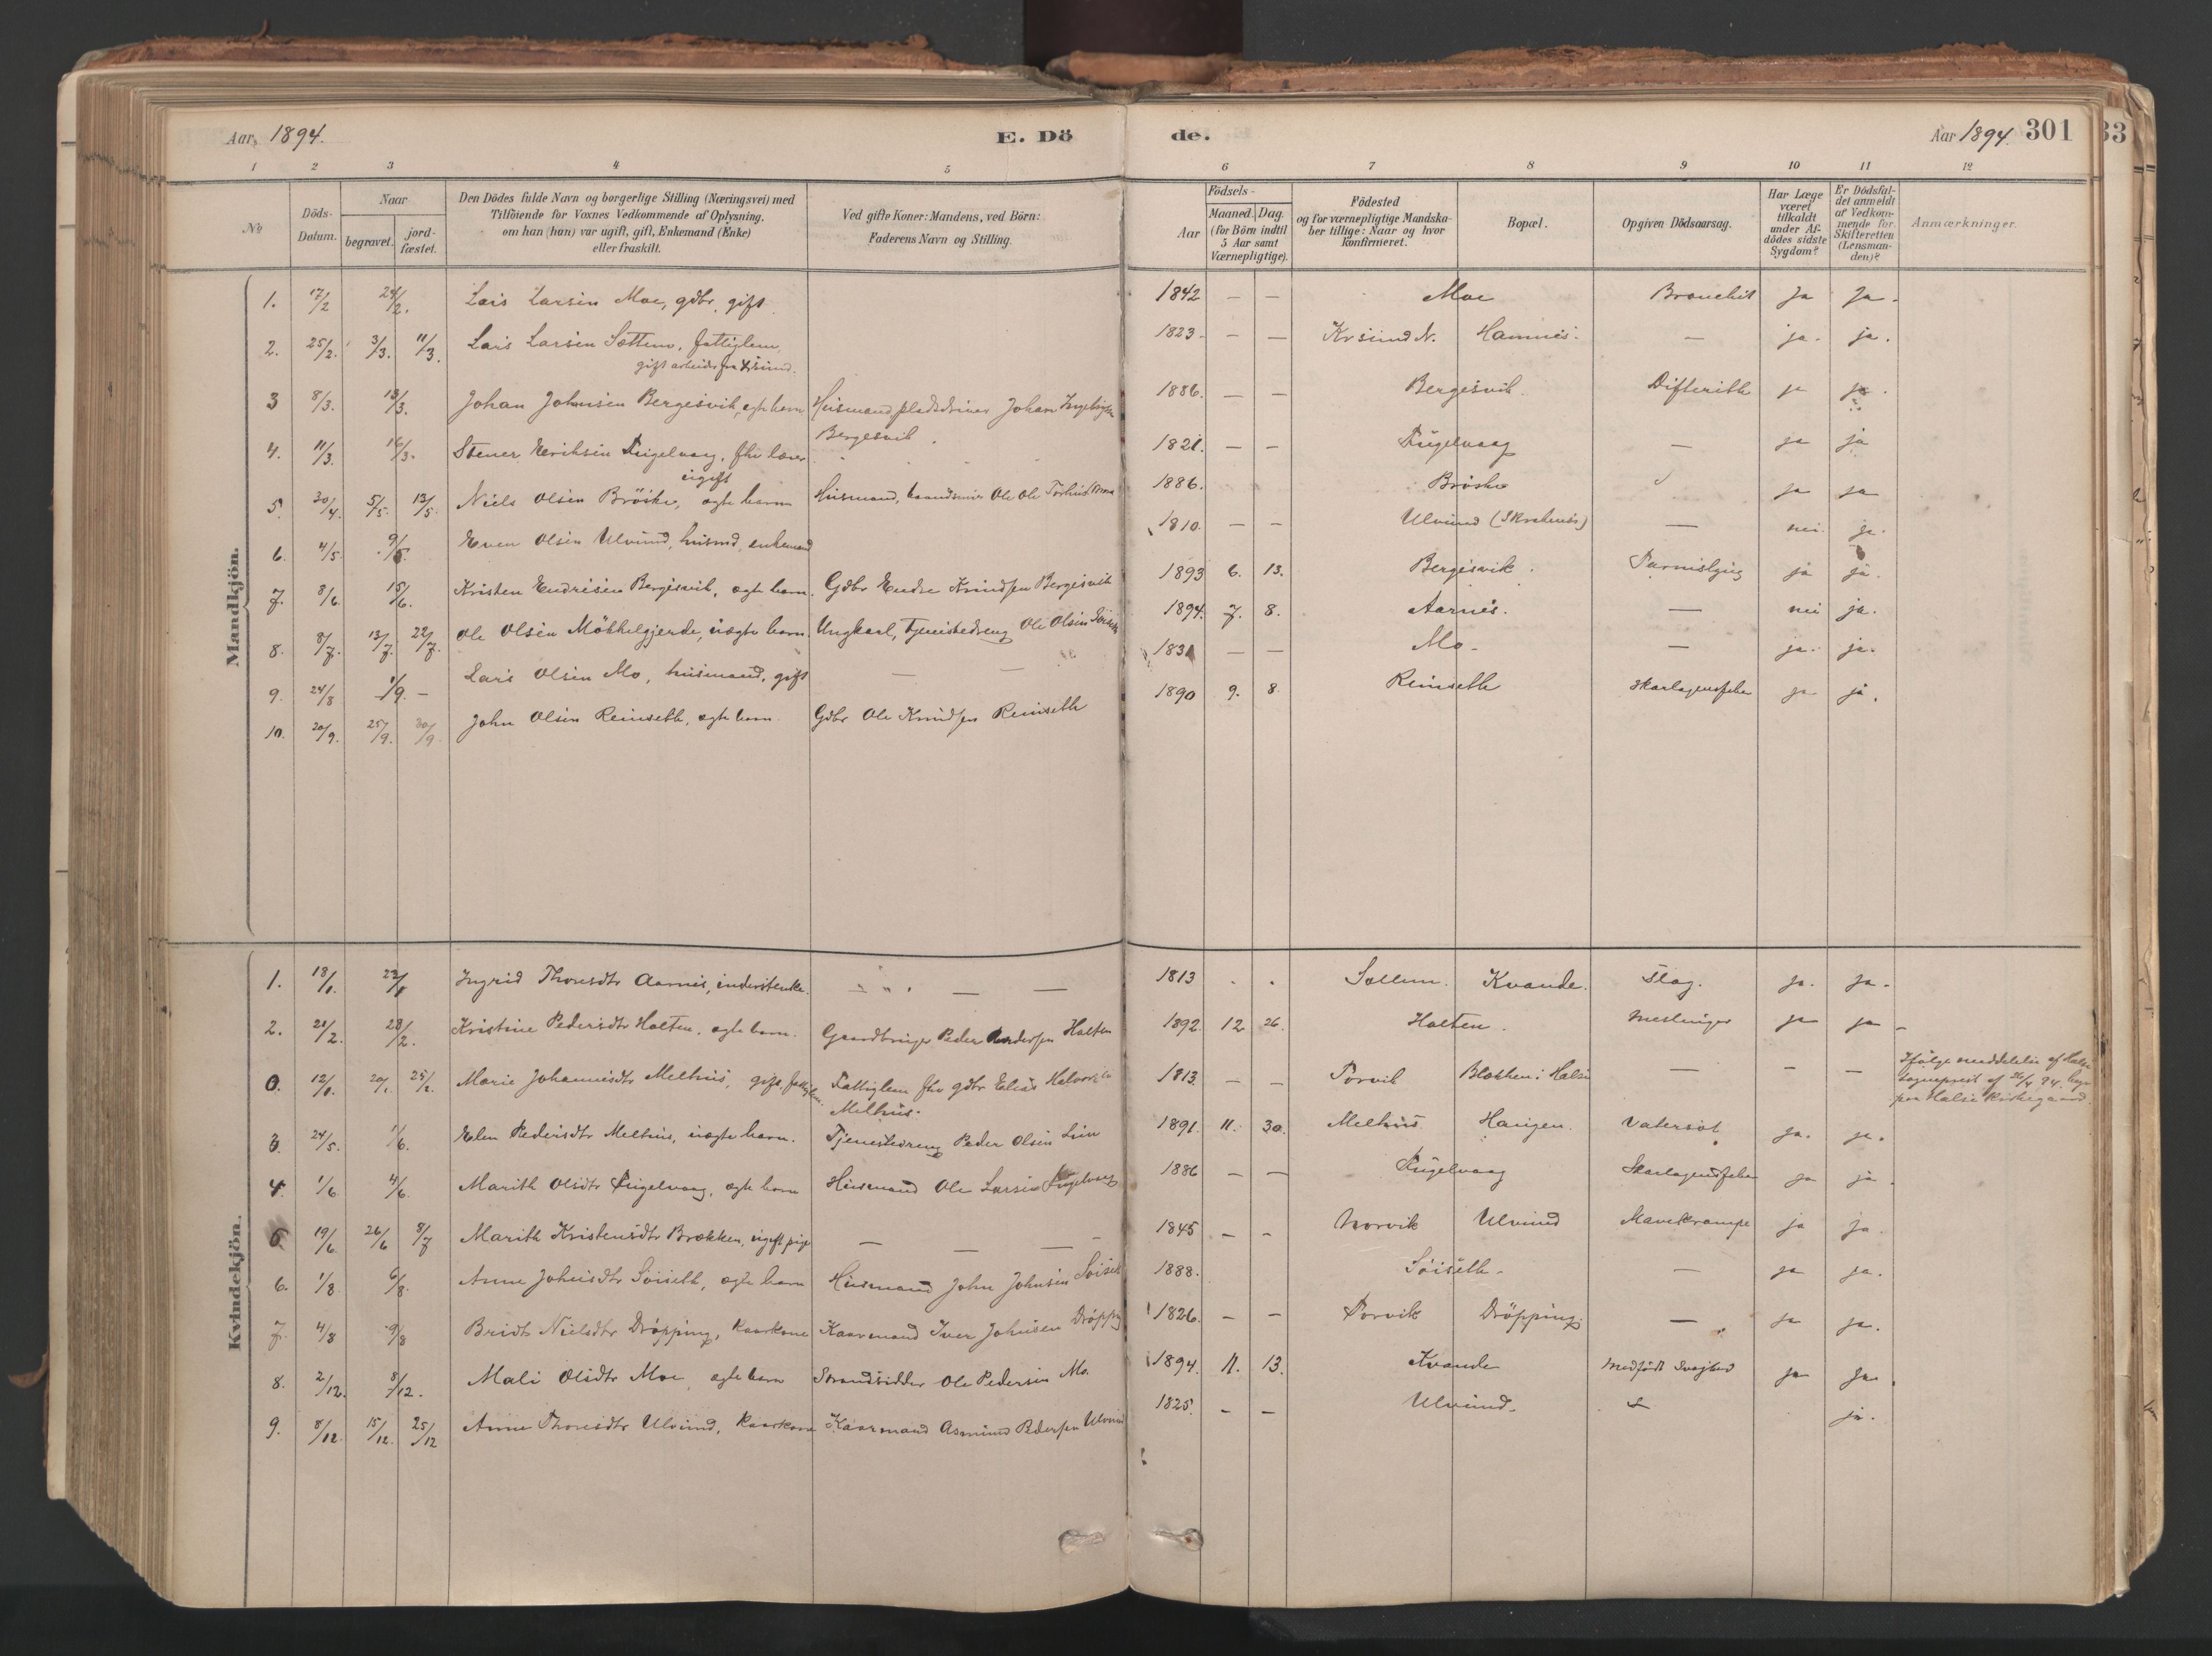 Aar 1894.
E. Dö
de.
Aar 1894. 301
33
1 2 3 4 5 6 7 8 9 10 11 12
No
Döds-Datum.
Naar
begravet.
jord-fæstet.
Den Dödes fulde Navn og borgerlige Stilling (Næringsvei) med
Tilföiende for Voxnes Vedkommende af Oplysning,
om han (hun) var ugift, gift, Enkemand (Enke)
eller fraskilt.
Ved gifte Koner: Mandens, ved Börn:
Faderens Navn og Stilling.
Födsels-
Aar
Maaned. Dag.
(for Börn indtil
5 Aar samt
Værnepligtige).
Födested
og for værnepligtige Mandska-
ber tillige: Naar og hvor
konfirmeret.
Bopæl.
Opgiven Dödsaarsag.
Har Læge
været
tilkaldt
under Af-
dödes sidste
Sygdom?
Er Dödsfal-
det anmeldt
af Vedkom-
mende for
Skifteretten
(Lensman-
den)?
Anmærkninger.
Mandkjön.
1. 17/2 24/2. Lars Larsen Moe, gdbr. gift 1842 — — Moe Bronchit Ja Ja.
2. 25/2. 3/3. 11/3. Lars Larsen Sættem, fattiglem, 1823 — — Krsund N. Hamnes. — ja. ja.
gift arbeider fra Krsund.
3 8/3. 13/3. Johan Johnsen Bergesvik, egte barn Husmand pladsbruger Johan Ingebrigtsen 1886. — — Bergesvik. Difterith ja ja.
Bergesvik.
4. 11/3. 16/3. Stener Eriksen Fugelvaag, fhv lærer 1821. — — Fugelvaag — ja ja
ugift
5. 30/4. 5/5. 13/5. Niels Olsen Bröske, egte barn Husmand, Ole Ole 1886. Bröske ja ja
6. 4/5. 9/5. Even Olsen Ulvund, husmd, enkemand 1810. — — Ulvund — nei. ja.
7. 8/6. 15/6. Kristen Endresen Bergesvik, egte barn. Gdbr Endre Knudsen Bergesvik 1893 6. 13. Bergesvik. Tarmslyng ja ja.
8. 8/7. 13/7. 22/7. Ole Olsen Mökkelgjerde, uægte barn Ungkarl, Tjenestedreng Ole Olsen 1894. 7. 8. Aarnes. — nei ja.
9. 24/8 1/9. — Lars Olsen Mo, husmand, gift — 1831 — — Mo. — ja. ja.
10. 20/9. 25/9. 30/9. John Olsen Reinseth, egte barn. Gdbr Ole Knudsen Reinseth 1890 9. 8. Reinseth Skarlagensfeber ja ja.
Kvindekjön.
1. 18/1. 23/1 Ingrid Thoresdtr Aarnes, inderstenke. — — 1813 . . Sollem. Kvande. Slag. ja. ja.
2. 21/2. 28/2. Kristine Pedersdtr Holten, egte barn. Gaardbruger Peder Pedersen Holten 1892 12 26. Holten. Meslinger ja ja
0. 12/1. 20/1. 25/2. Marie Johannesdtr Melhus, gift, fattiglem. Fattiglem fhv gdbr Elias Halvorsen 1813. — — Torvik Blækken i Halse — — — Ifølge meddelelse af Halse
Melhus. sogneprest af 26/4 94. begr
paa Halse Kirkegaard.
3. 24/5. 1/6. Elen Pedersdtr Melhus, uægte barn. Tjenestedreng Peder Olsen 1891. 11. 30. Melhus. Haugen. Vatersot ja. ja.
4. 1/6. 4/6. Marith Olsdtr Fugelvaag, egte barn Husmand Ole Larsen Fugelvaag 1886 — — Fugelvaag Skarlagensfeber ja ja.
5. 19/6. 26/6 8/7 Marith Kristensdtr Brækken, ugift pige — — — 1845 — — Ulvund Mavekrampe ja ja
6. 1/8 6/8. Anne Johnsdtr Söiseth, egte barn Husmand John Johnsen Söiseth 1888. Söiseth. — ja ja.
7. 4/8 9/8 Bridt Nielsdtr Dröpping, kaarkone Kaarmand Iver Johnsen Dröpping 1826. — — Torvik Dröpping. — ja ja.
8. 2/12. 8/12. Mali Olsdtr Moe egte barn Strandsidder Ole Pedersen Mo. 1894. 11. 13. Kvande Medfödt Svaghed ja ja.
9. 8/12. 15/12. 25/12 Anne Thoresdtr Ulvund, kaarkone Kaarmand Asmund Pedersen Ulvund 1825. — — Ulvund. ja.